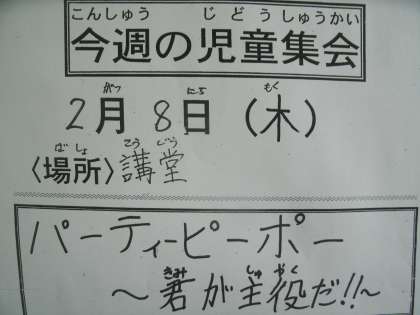 こんしゅう じどうしゅうかい
今週の児童集会
がつ にち もく
2月 8日 (木)
ばしょ こうどう
〈場所〉講堂
パーティーピーポー
きみ しゅやく
～君が主役だ!!～